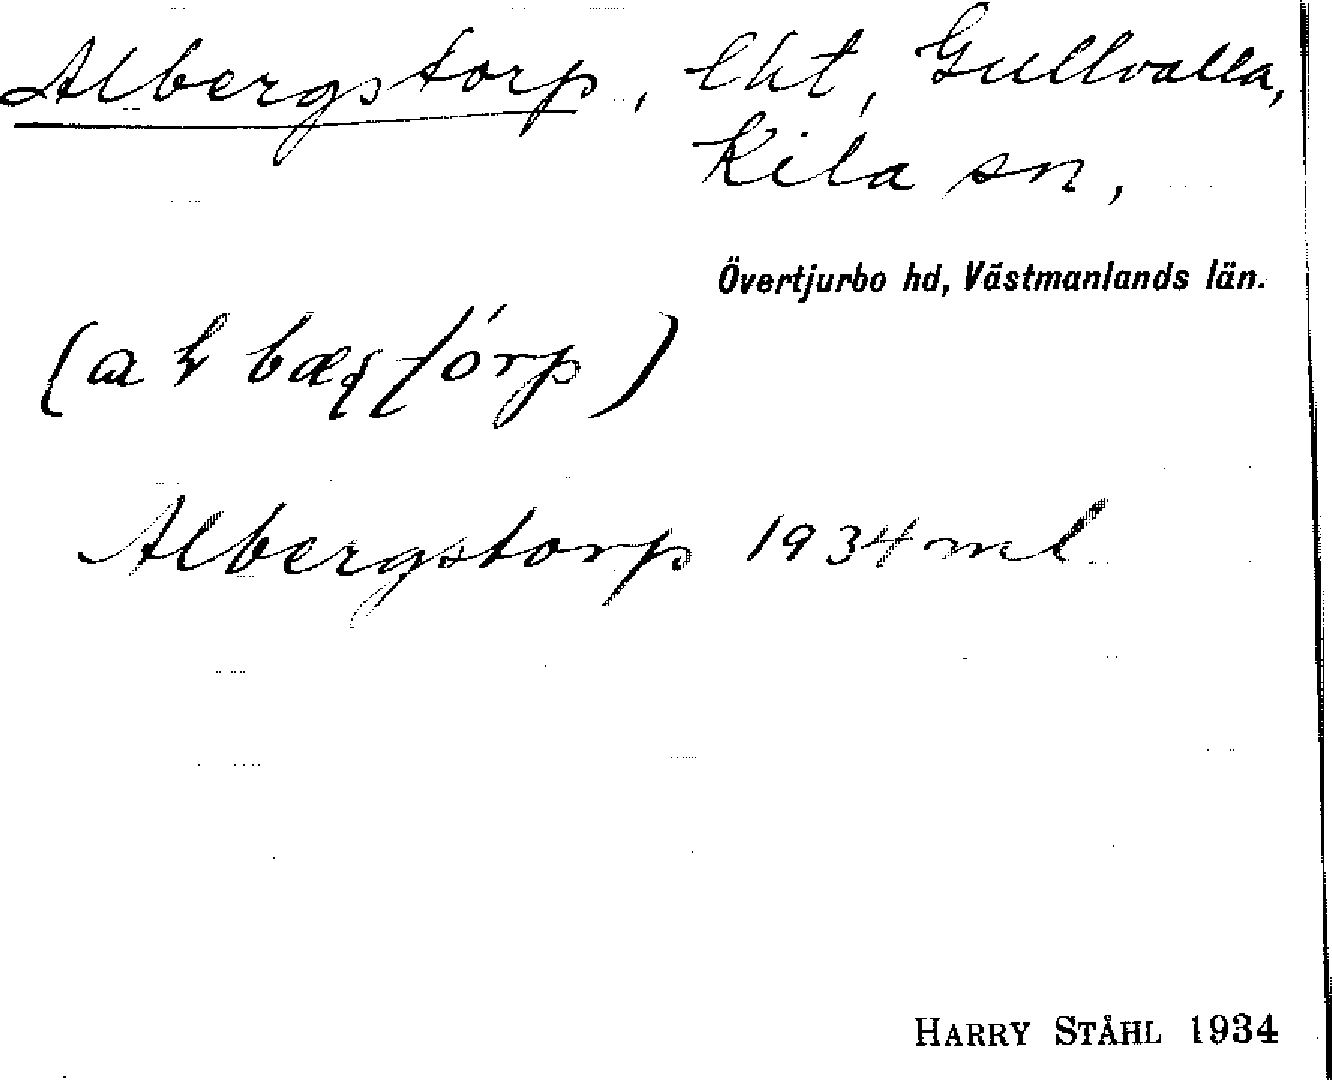 Albergstorp, lht, Gullvalla,
Kila sn,
Övertjurbo hd, Västmanlands län.
Albergstorp 1934 ml
HARRY STÅHL 1934